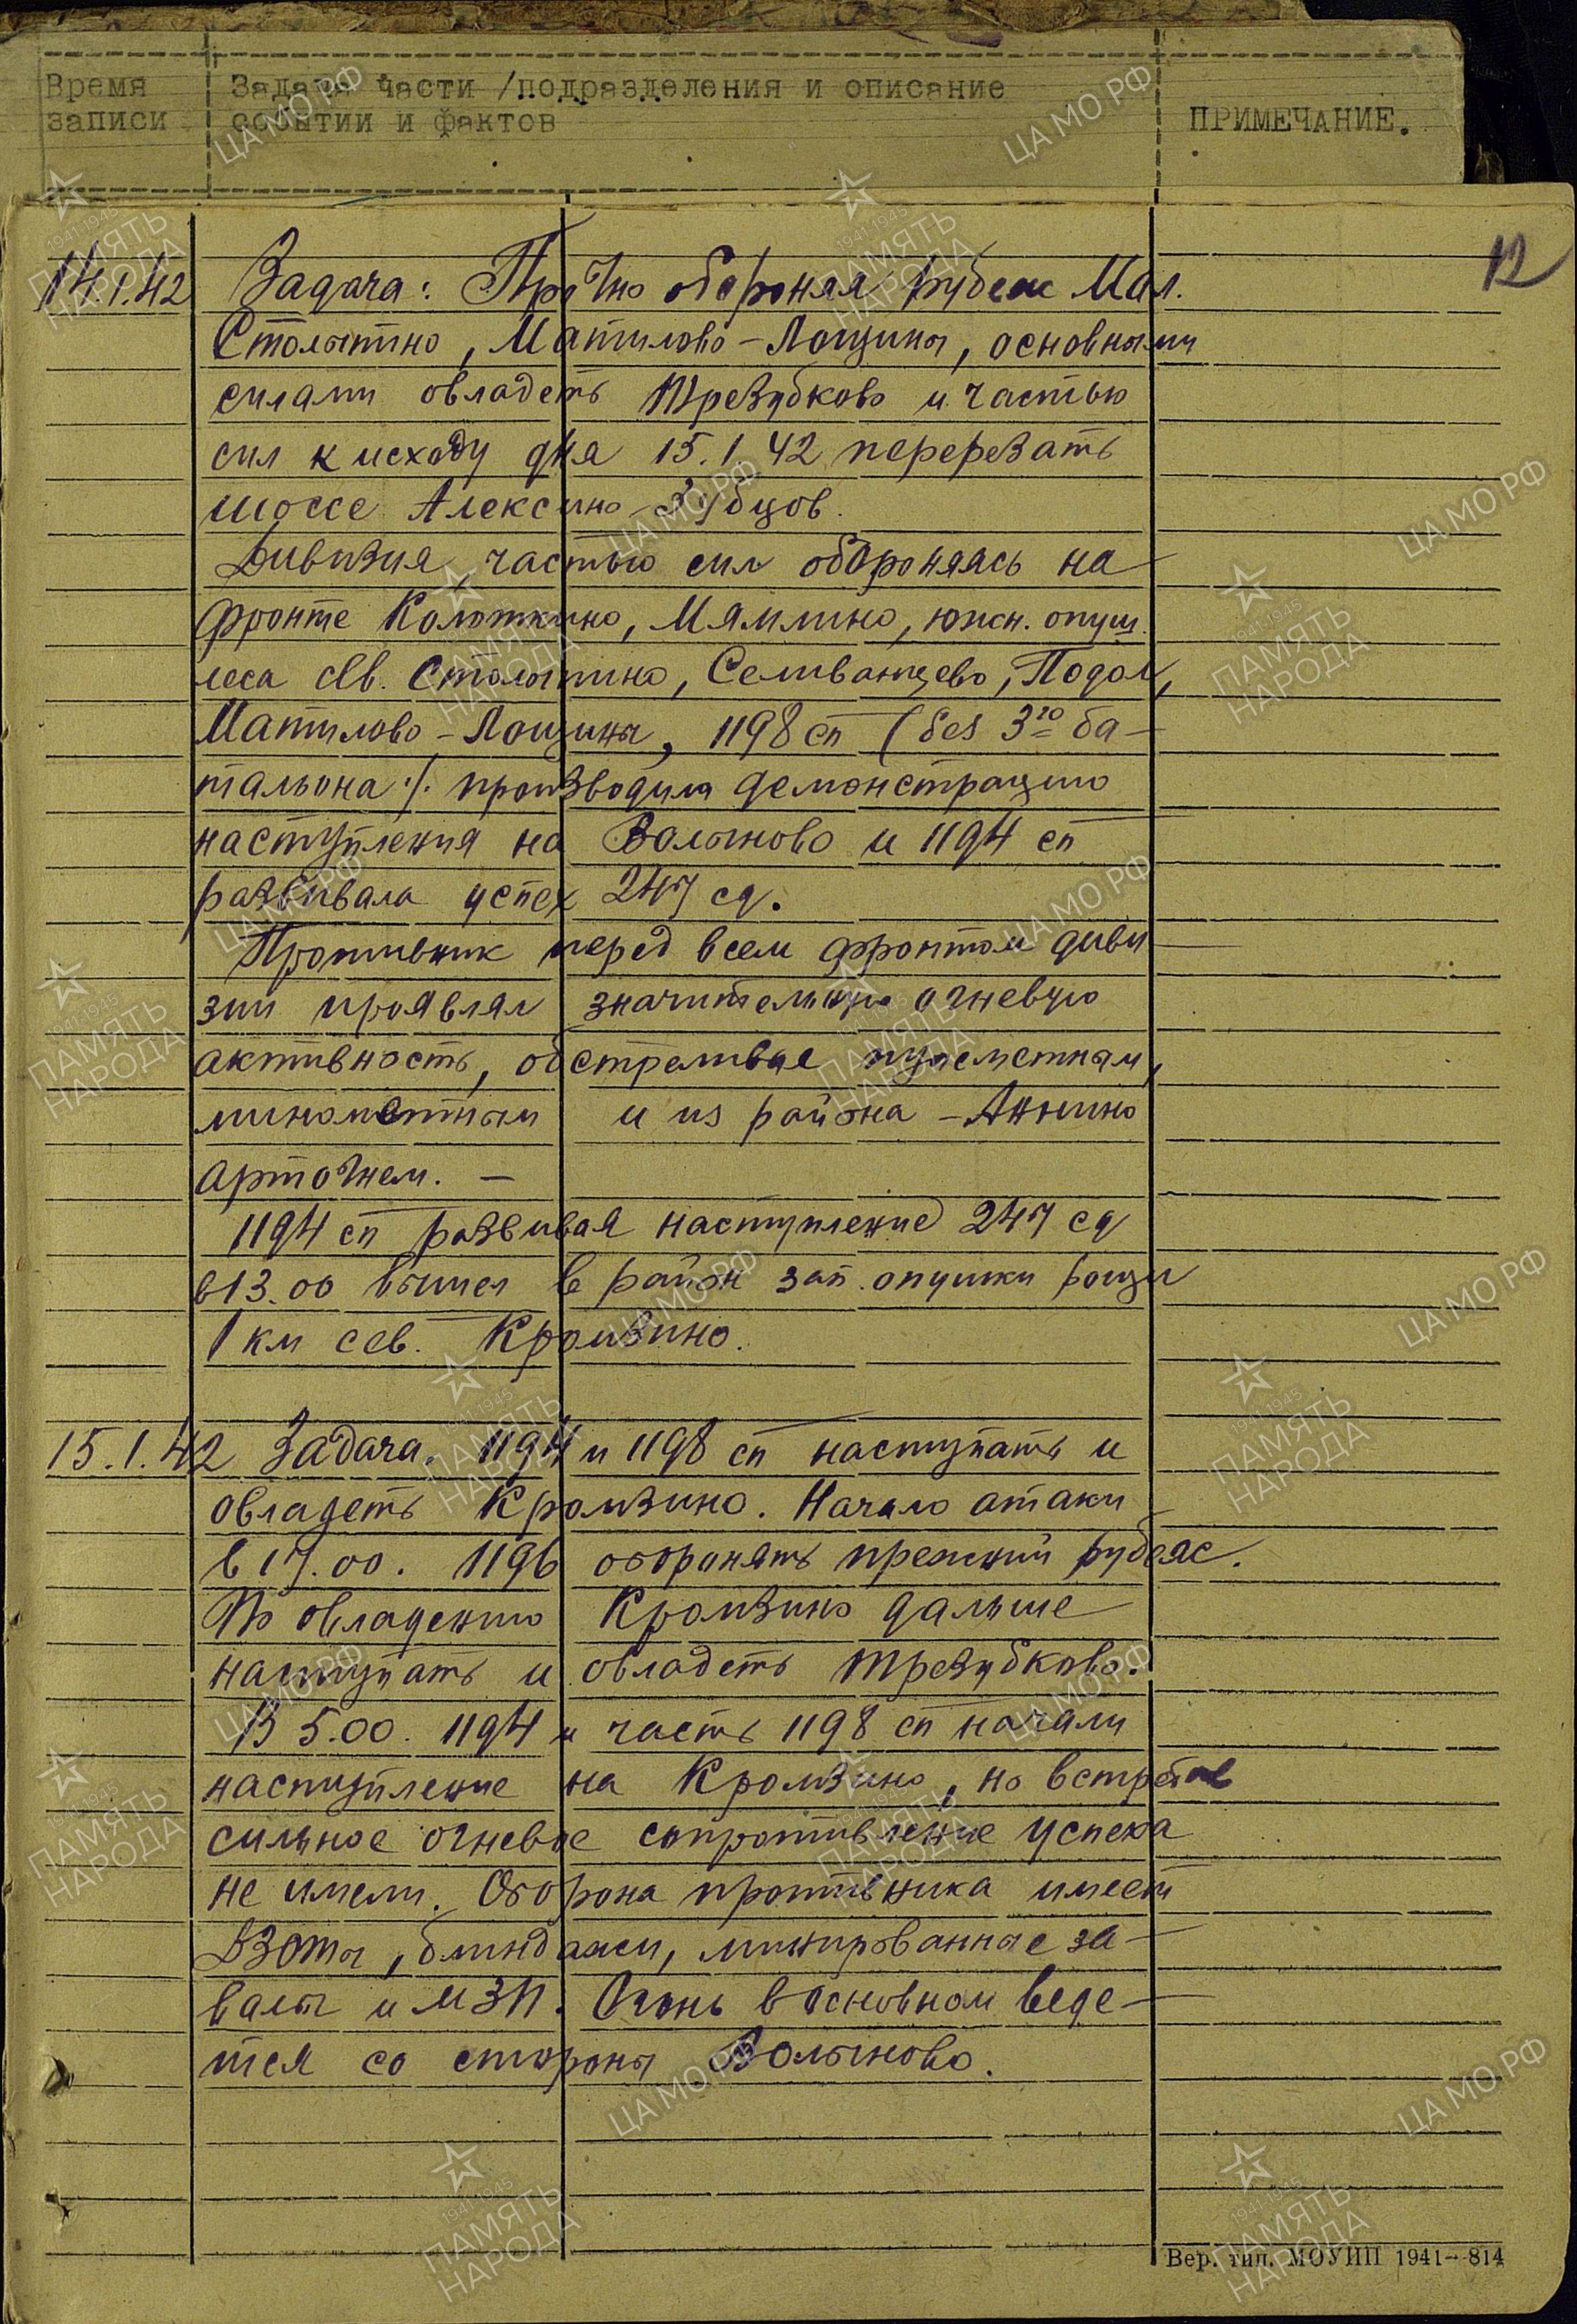 Время Задача части /подразделения и описание
записи событий и фактов ПРИМЕЧАНИЕ.
12
14.1.42 Задача: Прочно обороняя рубеж Мал.
Столыпино, Матюково-Лощины, основными
силами овладеть Трезубково и частью
сил к исходу дня 15.1.42 перерезать
шоссе Алексино-Зубцов.
Дивизия частью сил обороняясь на
фронте Колоткино, Мямлино, южн. опуш.
леса св. Столыпино, Селиванцево, Подол,
Матилово-Лощины, 1198 сп (без 3го ба-
тальона/. производила демонстрацию
наступления на Волыново и 1194 сп
развивала успех 247 сд.
Противник перед всем фронтом диви
зии проявлял значительную огневую
активность, обстреливая пулеметным,
минометным и из района - Аннино
артогнем. -
1194 сп развивая наступление 247 сд
в 13.00 вышел в район зап. опушки рощи
1 км сев. Кромзино.
15.1.42 Задача. 1194 и 1198 сп наступать и
овладеть Кромзино. Начало атаки
в 17.00. 1196 оборонять прежний рубеж.
По овладению Кромзино дальше
наступать и овладеть Трезубково.
В 5.00. 1194 и часть 1198 сп начали
наступление на Кромзино, но встретив
сильное огневое сопротивление успеха
не имели. Оборона противника имеет
ДЗОТы, блиндажи, минированные за-
валы и МЗП. Огонь в основном веде-
тся со стороны Волыново.
Вер. тип. МОУНП 1941-814
ЦА МО РФ
1941-1945
ПАМЯТЬ
НАРОДА